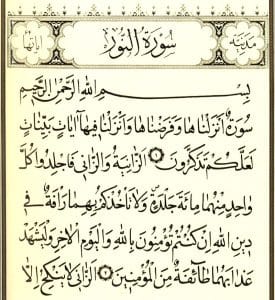 مدنية سورة النور آياتها
بسم الله الرحمن الرحيم
سورة أنزلناها وفرضناها وأنزلنا فيها آيات بينات
لعلكم تذكرون الزانية والزاني فاجلدوا كل
واحد منهما مائة جلدة ولا تأخذكم بهما رأفة في
دين الله إن كنتم تؤمنون بالله واليوم الآخر وليشهد
عذابهما طائفة من المؤمنين الزاني لا ينكح إلا